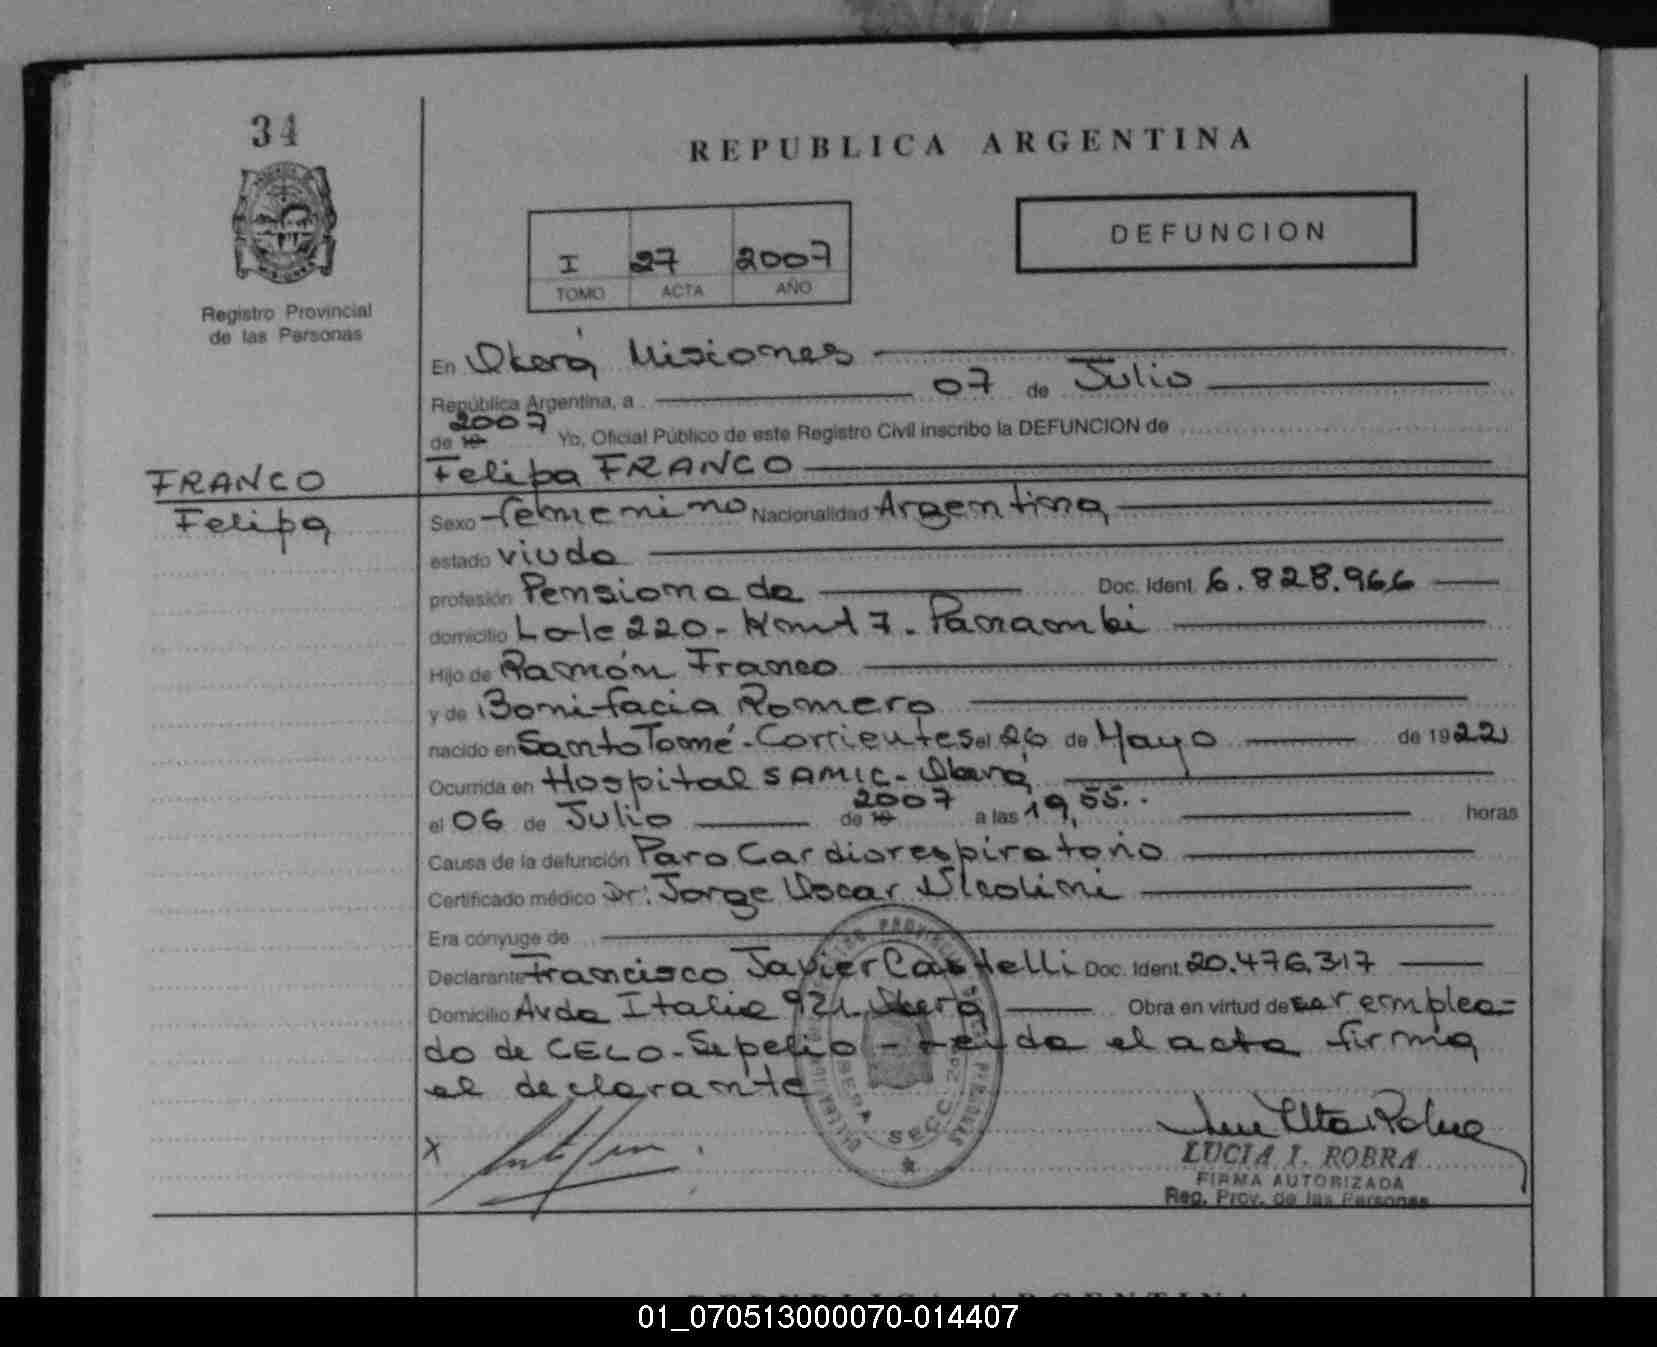 34
REPUBLICA ARGENTINA
DEFUNCION
I 27 2007
TOMO ACTA AÑO
Registro Provincial
de las Personas
En Oberá Misiones
República Argentina, a 07 de Julio
de 19 2007 Yo, Oficial Público de este Registro Civil inscribo la DEFUNCION de
FRANCO
Felipa FRANCO
Felipa
Sexo femenino Nacionalidad Argentina
estado viuda
profesión Pensionada Doc. Ident. 6.828.966
domicilio Lote 220 - Km 17. Panambi
Hijo de Ramón Franco
y de Bonifacia Romero
nacido en Santo Tomé - Corrientes el 26 de Mayo de 1922
Ocurrida en Hospital SAMIC - Oberá
el 06 de Julio de 19 2007 a las 19,55.. horas
Causa de la defunción Paro Cardiorespiratorio
Certificado médico Dr: Jorge Oscar Nicolini
Era cónyuge de
Declarante Francisco Javier Castelli Doc. Ident. 20.476.317
Domicilio Avda Italia 921. Oberá Obra en virtud de ser emplea=
do de CELO - Sepelio - Leída el acta firma
el declarante
X
LUCIA I. ROBRA
FIRMA AUTORIZADA
Reg. Prov. de las Personas
REPUBLICA ARGENTINA
01_070513000070-014407